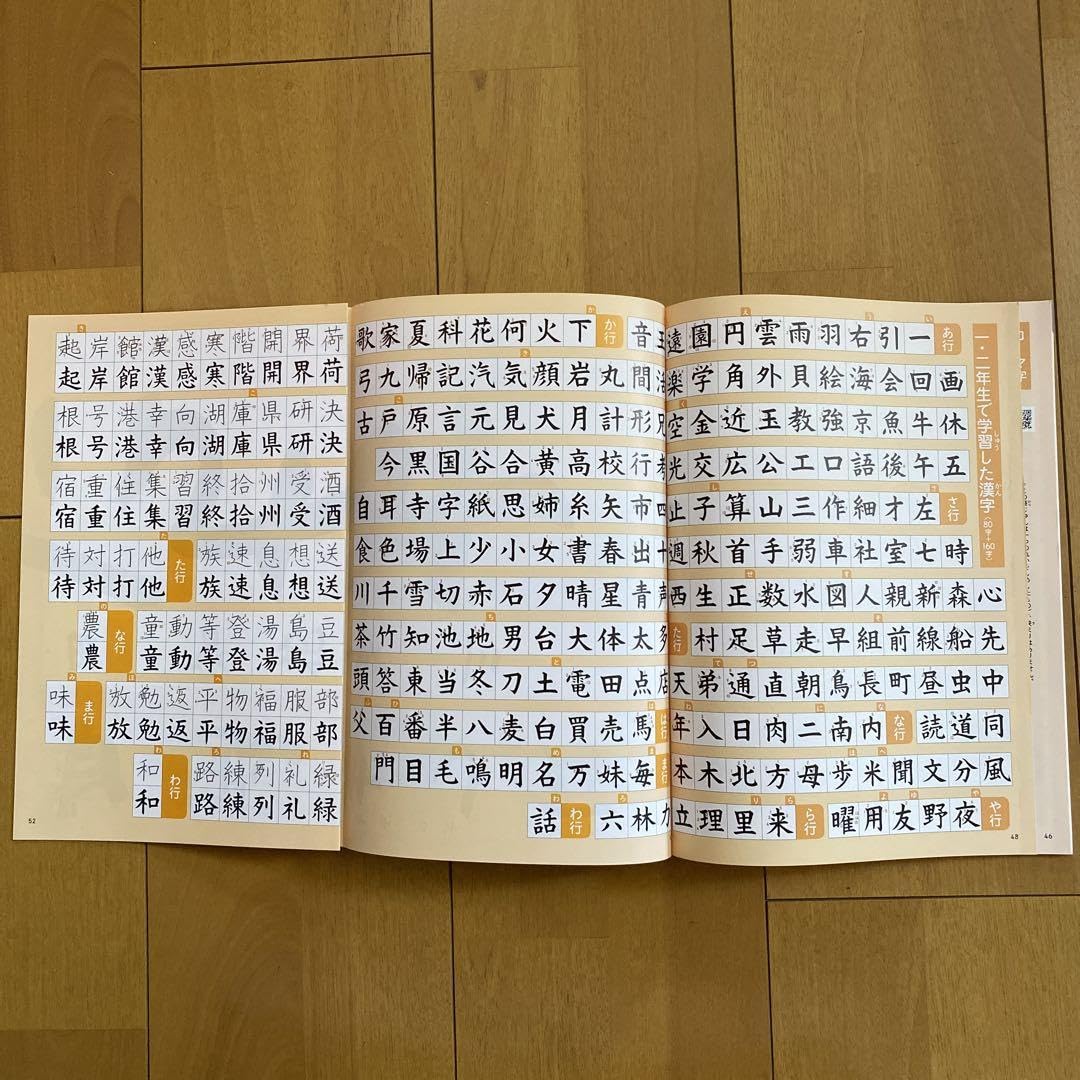 一・二年生で学習した漢字〈80字+160字〉
あ行一引右羽雨雲円園遠王音か行下火何花科夏家歌
画回会海絵貝外角学楽活間丸岩顔気汽記帰九弓
休牛魚京強教玉近金空兄形計月犬見元言原戸古
五午後語口工公広交光考行校高黄合谷国黒今
さ行左才細作三山算子止四市矢糸姉思紙字寺耳自
時七室社車弱手首秋週十出春書女小少上場色食
心森新親人図水数正生西声青星晴夕石赤切雪千川
先船線前組早走草足村た行多太体大台男地池知竹茶
中虫昼町長鳥朝直通弟天店点田電土刀冬当東答頭
同道読な行内南二肉日入年は行馬売買白麦八半番百父
風分文聞米歩母方北木本ま行毎妹万名明鳴毛目門
や行夜野友用曜ら行来里理立力林六わ行話
48
46
荷界開階寒感漢館岸起
荷界開階寒感漢館岸起
決研県庫湖向幸港号根
決研県庫湖向幸港号根
酒受州拾終習集住重宿
酒受州拾終習集住重宿
送想息速族た行他打対待
送想息速族他打対待
豆島湯登等動童な行農
豆島湯登等動童農
部服福物平返勉放ま行味
部服福物平返勉放味
緑礼列練路わ行和
緑礼列練路和
52